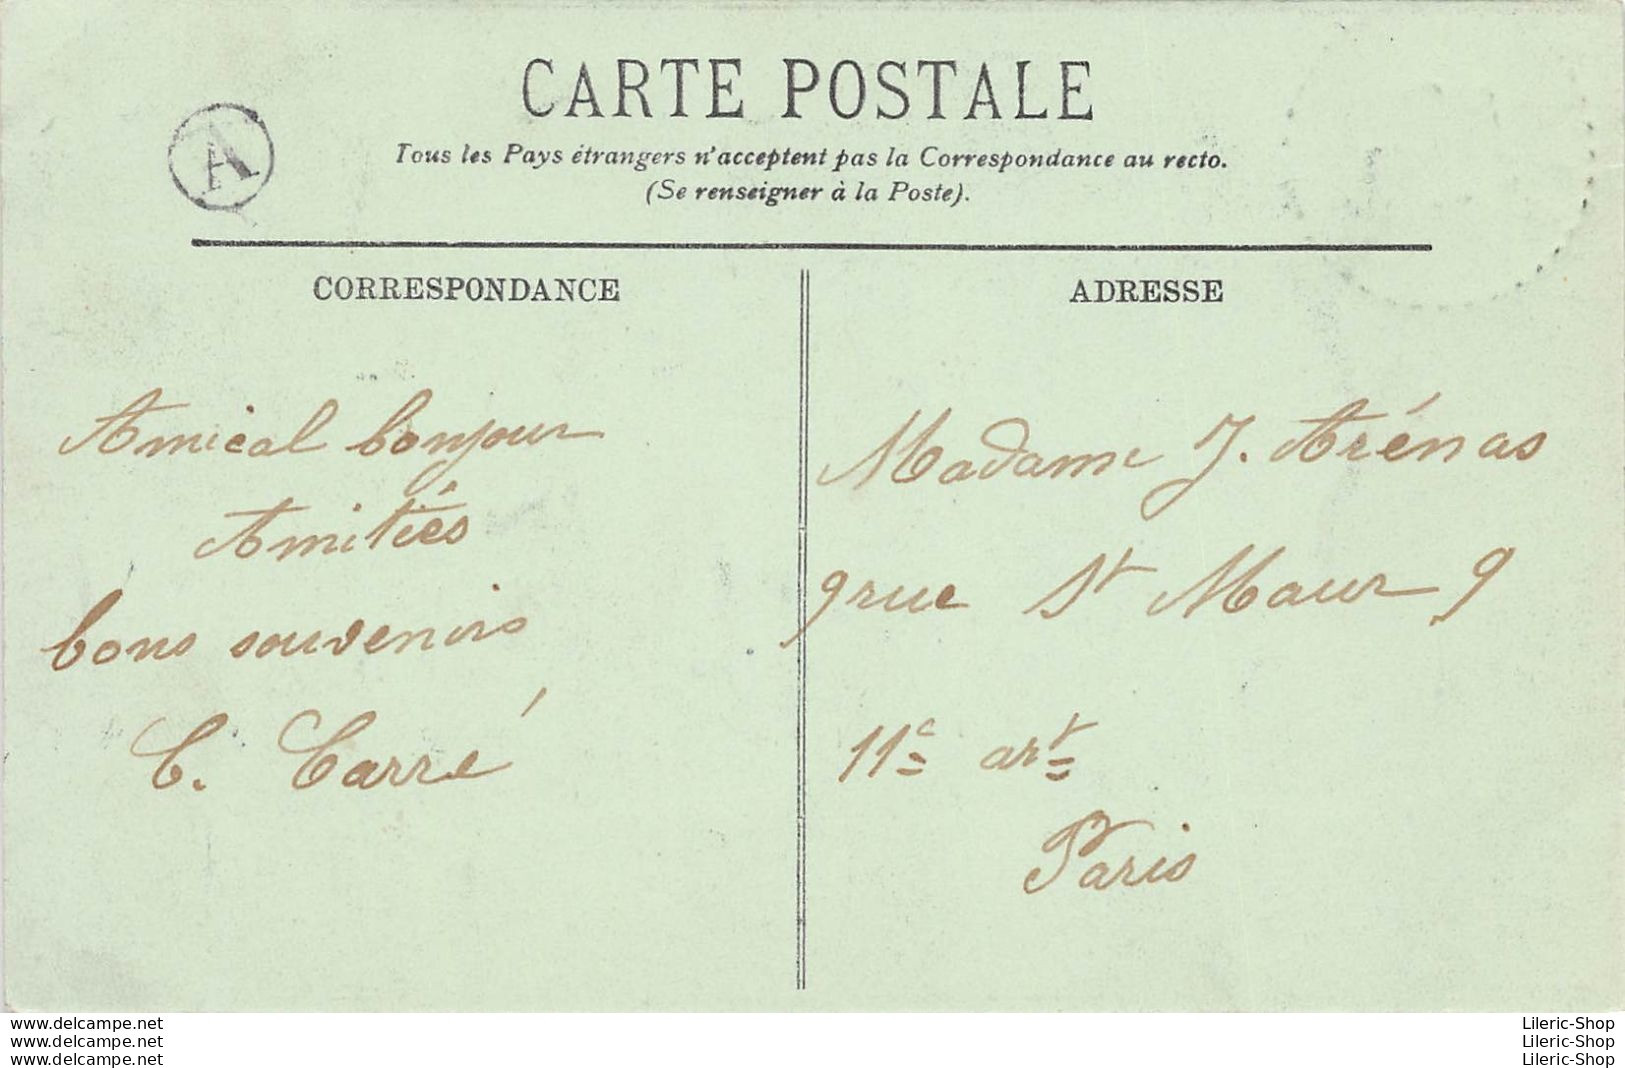 CARTE POSTALE
A
Tous les Pays étrangers n'acceptent pas la Correspondance au recto.
(Se renseigner à la Poste).
CORRESPONDANCE
Amical bonjour
Amitiés
bons souvenirs
C. Carré
ADRESSE
Madame J. Arénas
9 rue St Maur 9
11e art
Paris
www.delcampe.net
www.delcampe.net
www.delcampe.net
Lileric-Shop
Lileric-Shop
Lileric-Shop